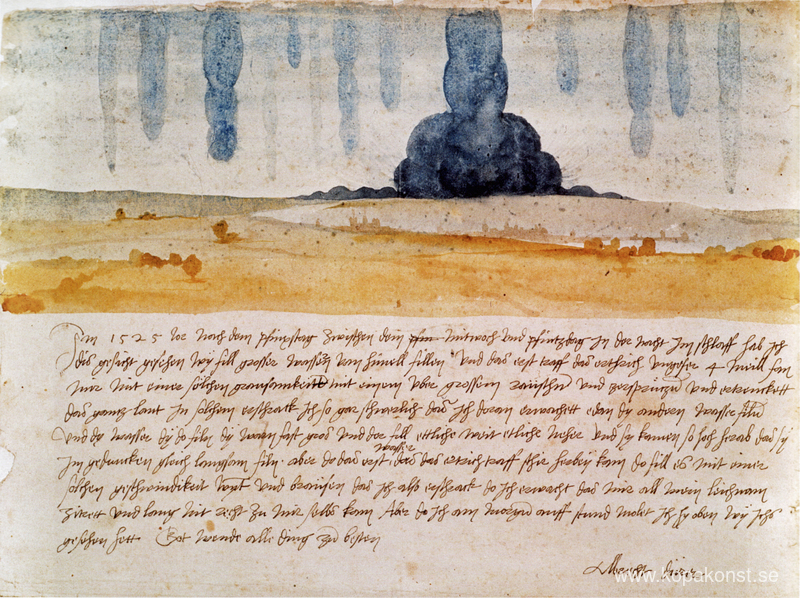 Im 1525 Jor nach dem pfinxstag zwischen dem pfin mitwoch und pfintzdag in der nacht im schlaff hab ich
dis gesicht gesehen wy fill grosser wassern vom himell fillen Und das erst traff das erthrich ungefer 4 meill fan
mir mit einer solchen grausamkeitt mit einem uber grossem raüschn und zersprützn und ertrenckett
das gantz lant In solchem erschrack ich so gar schwerlich das ich doran erwachett edan dy andern wasser filn
Und dy wasser dy do filn dy warn fast gros und der fill ettliche weit etliche neher und sy kamen so hoch herab das sy
im geduncken gleich langsam filn. aber do das erst wasser das das ertrich traff schir herbey kam do fill es mit einer
solchen geschwindikeit wynt und braüsen das ich also erschrack do ich erwacht das mir all mein leichnam
zitrett und lang nit recht zu mir selbs kam Aber do ich am morgn auff stund molet ich hy oben wy ichs
gesehen hett Got wende alle ding zu besten
Albrecht dürer
www.kopakonst.se